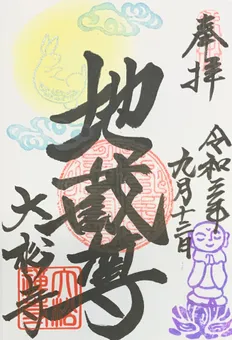 奉拝
令和三年
九月十三日
地蔵尊
大松寺